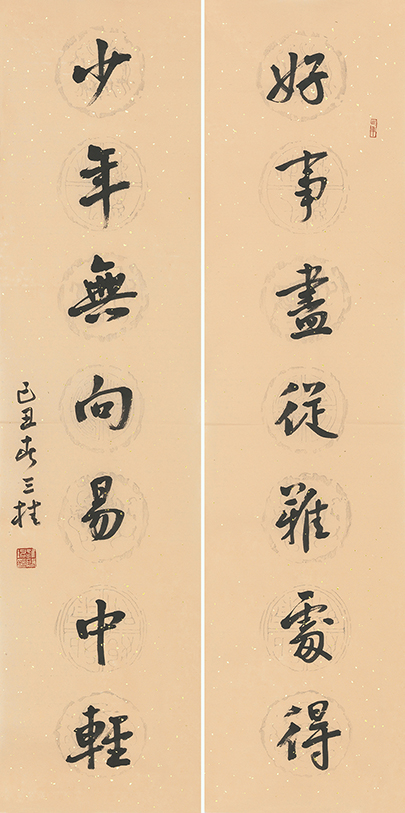 好事盡從難處得
少年無向易中輕
己丑春三桂